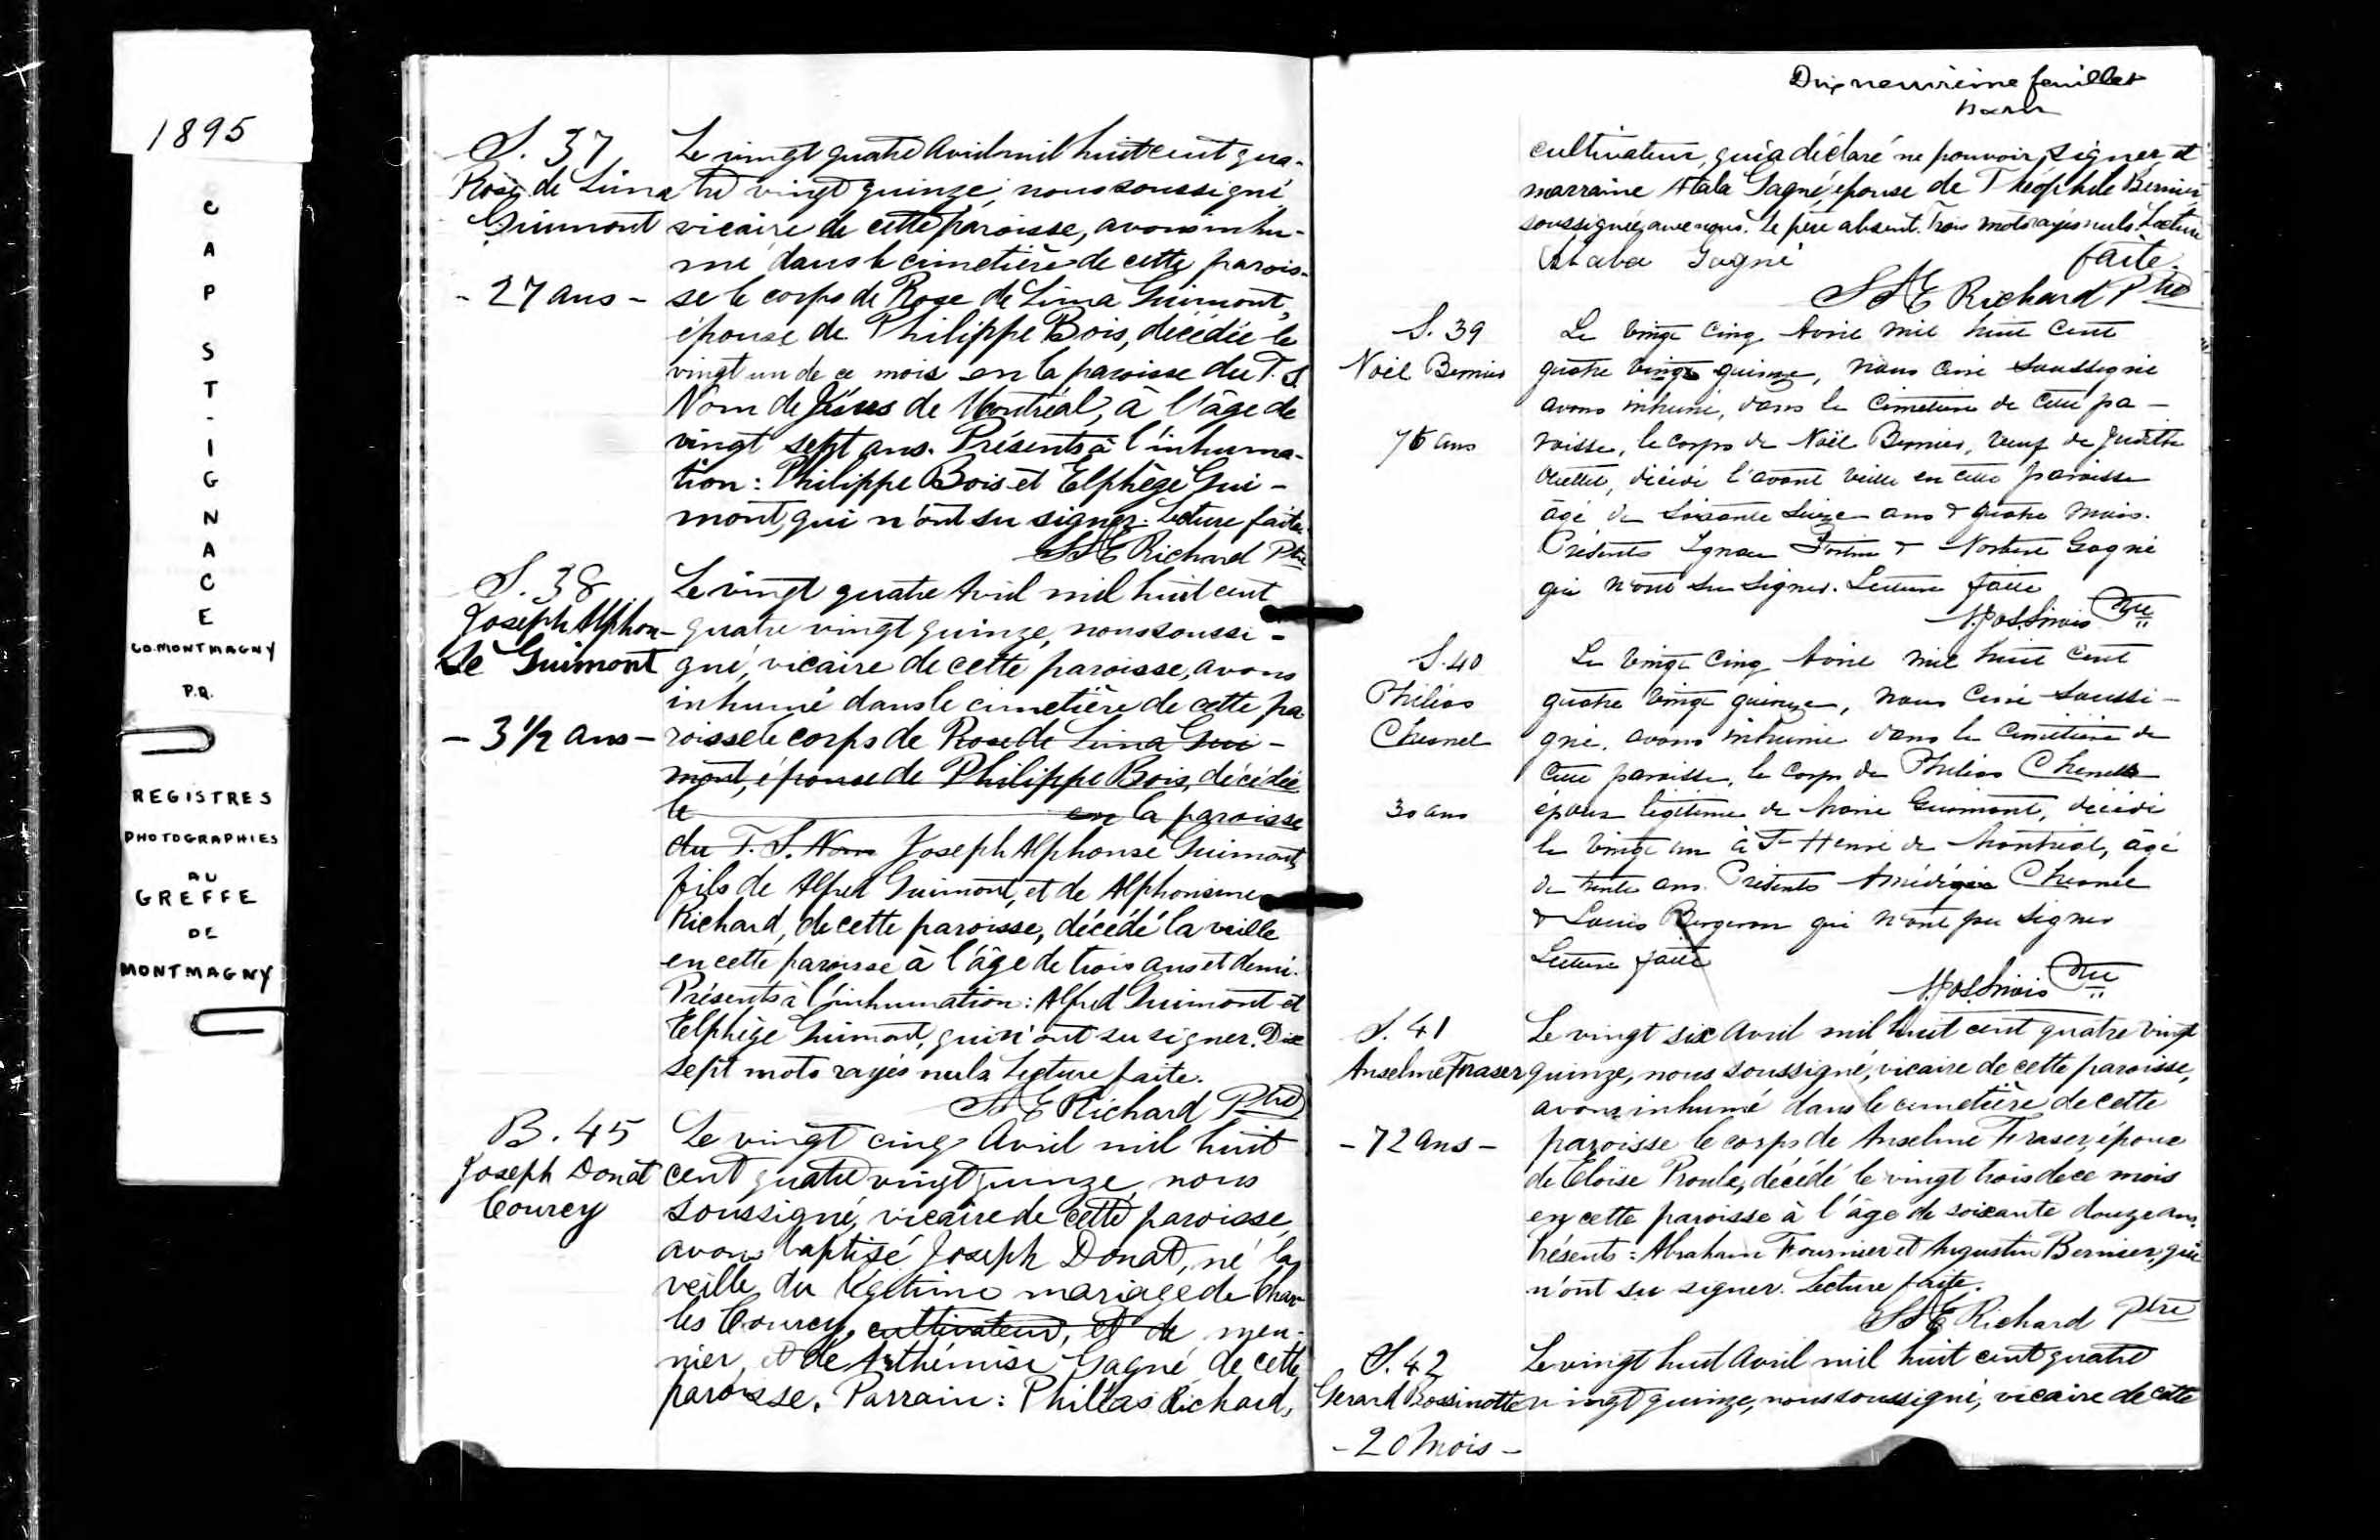 1895
CAP ST-IGNACE
CO. MONTMAGNY
P.Q.
REGISTRES
PHOTOGRAPHIES
AU
GREFFE
DE
MONTMAGNY
S. 37
Rose de Lima
Guimont
- 27 ans -
Le vingt quatre Avril mil huit cent qua-
tre vingt quinze, nous soussigné
vicaire de cette paroisse, avons inhu-
mé dans le cimetière de cette parois-
se le corps de Rose de Lima Guimont,
épouse de Philippe Bois, décédée le
vingt un de ce mois en la paroisse du T. S.
Nom de Jésus de Montréal, à l'âge de
vingt sept ans. Présents à l'inhuma-
tion : Philippe Bois et Elphège Gui-
mont, qui n'ont su signer. Lecture faite.
Richard Ptre
S. 38
Joseph Alphon-
se Guimont
- 3 1/2 ans -
Le vingt quatre Avril mil huit cent
quatre vingt quinze, nous soussi-
gné, vicaire de cette paroisse, avons
inhumé dans le cimetière de cette pa
roisse le corps de Rose de Lima Gui-
mont, épouse de Philippe Bois, décédée
le en la paroisse
du T. S. Nom Joseph Alphonse Guimont,
fils de Alfred Guimont, et de Alphonsine
Richard, de cette paroisse, décédé la veille
en cette paroisse à l'âge de trois ans et demi.
Présents à l'inhumation : Alfred Guimont et
Elphège Guimont, qui n'ont su signer. Dix
sept mots rayés nuls Lecture faite.
Richard Ptre
B. 45
Joseph Donat
Courcy
Le vingt cinq Avril mil huit
cent quatre vingt quinze, nous
soussigné, vicaire de cette paroisse,
avons baptisé Joseph Donat, né la
veille du légitime mariage de Char
les Courcy, cultivateur, et de meu-
nier, et de Arthémise Gagné de cette
paroisse. Parrain : Philéas Richard,
Dix neuvième feuillet
cultivateur, qui a déclaré ne pouvoir signer, et
marraine Atala Gagné, épouse de Théophile Bernier,
soussignée avec nous. Le père absent. Trois mots rayés nuls. Lecture
faite.
Atala Gagné
Richard Ptre
S. 39
Noël Bernier
76 ans
Le vingt cinq Avril mil huit cent
quatre vingt quinze, nous curé soussigné
avons inhumé, dans le cimetière de cette pa-
roisse, le corps de Noël Bernier, veuf de Judith
Ouellet, décédé l'avant veille en cette paroisse
âgé de soixante seize ans & quatre mois.
Présents Ignace Fortin & Norbert Gagné
qui n'ont su signer. Lecture faite
Sirois Ptre
S. 40
Philias
Chesnel
30 ans
Le vingt cinq Avril mil huit cent
quatre vingt quinze, nous curé soussi-
gné, avons inhumé dans le cimetière de
cette paroisse, le corps de Philias Chesnel
époux légitime de Marie Guimont, décédé
le vingt un à St Henri de Montréal, âgé
de trente ans. Présents Amédée Chesnel
& Louis Bergeron qui n'ont pu signer
Lecture faite
Sirois Ptre
S. 41
Anselme Fraser
- 72 ans -
Le vingt six Avril mil huit cent quatre vingt
quinze, nous soussigné, vicaire de cette paroisse,
avons inhumé dans le cimetière de cette
paroisse le corps de Anselme Fraser, époux
de Eloïse Proulx, décédé le vingt trois de ce mois
en cette paroisse à l'âge de soixante douze ans.
Présents : Abraham Fournier et Augustin Bernier, qui
n'ont su signer. Lecture faite.
Richard Ptre
S. 42
Gerard Bossinotte
- 20 Mois -
Le vingt huit Avril mil huit cent quatre
vingt quinze, nous soussigné, vicaire de cette